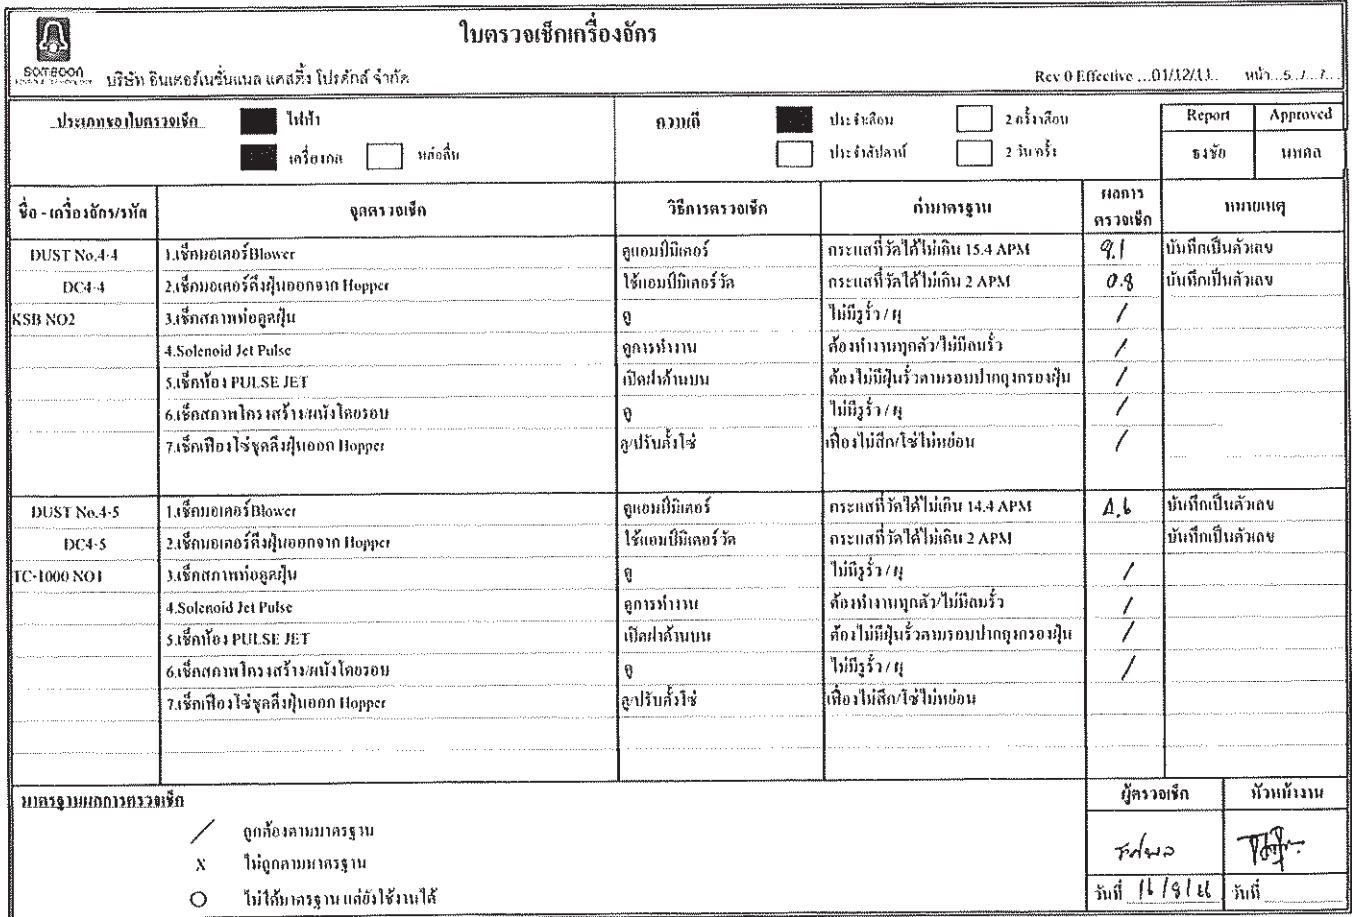 ใบตรวจเช็กเครื่องจักร
SOMBOON
บริษัท อินเตอร์เนชั่นแนล แคสติ้ง โปรดักส์ จำกัด
Rev 0 Effective ...01/12/13.. หน้า...5../...7...
ประเภทของใบตรวจเช็ก ไฟฟ้า ความถี่ ประจำเดือน 2 ครั้ง/เดือน Report Approved
เครื่องกล หล่อลื่น ประจำสัปดาห์ 2 วัน/ครั้ง ธงชัย นพดล
ชื่อ - เครื่องจักร/รหัส จุดตรวจเช็ก วิธีการตรวจเช็ก ค่ามาตรฐาน ผลการตรวจเช็ก หมายเหตุ
DUST No.4-4 1.เช็กมอเตอร์Blower ดูแอมป์มิเตอร์ กระแสที่วัดได้ไม่เกิน 15.4 APM 9.1 บันทึกเป็นตัวเลข
DC4-4 2.เช็กมอเตอร์ดึงฝุ่นออกจาก Hopper ใช้แอมป์มิเตอร์วัด กระแสที่วัดได้ไม่เกิน 2 APM 0.8 บันทึกเป็นตัวเลข
KSB NO2 3.เช็กสภาพท่อดูดฝุ่น ดู ไม่มีรูรั่ว / ผุ /
4.Solenoid Jet Pulse ดูการทำงาน ต้องทำงานทุกตัว/ไม่มีลมรั่ว /
5.เช็กห้อง PULSE JET เปิดฝาด้านบน ต้องไม่มีฝุ่นรั่วตามรอบปากถุงกรองฝุ่น /
6.เช็กสภาพโครงสร้าง/ผนังโดยรอบ ดู ไม่มีรูรั่ว / ผุ /
7.เช็กเฟืองโซ่ชุดดึงฝุ่นออก Hopper ดู/ปรับตั้งโซ่ เฟืองไม่สึก/โซ่ไม่หย่อน /
DUST No.4-5 1.เช็กมอเตอร์Blower ดูแอมป์มิเตอร์ กระแสที่วัดได้ไม่เกิน 14.4 APM บันทึกเป็นตัวเลข
DC4-5 2.เช็กมอเตอร์ดึงฝุ่นออกจาก Hopper ใช้แอมป์มิเตอร์วัด กระแสที่วัดได้ไม่เกิน 2 APM บันทึกเป็นตัวเลข
TC-1000 NO1 3.เช็กสภาพท่อดูดฝุ่น ดู ไม่มีรูรั่ว / ผุ /
4.Solenoid Jet Pulse ดูการทำงาน ต้องทำงานทุกตัว/ไม่มีลมรั่ว /
5.เช็กห้อง PULSE JET เปิดฝาด้านบน ต้องไม่มีฝุ่นรั่วตามรอบปากถุงกรองฝุ่น /
6.เช็กสภาพโครงสร้าง/ผนังโดยรอบ ดู ไม่มีรูรั่ว / ผุ /
7.เช็กเฟืองโซ่ชุดดึงฝุ่นออก Hopper ดู/ปรับตั้งโซ่ เฟืองไม่สึก/โซ่ไม่หย่อน
มาตรฐานผลการตรวจเช็ก ผู้ตรวจเช็ก หัวหน้างาน
/ ถูกต้องตามมาตรฐาน
X ไม่ถูกตามมาตรฐาน
O ไม่ได้มาตรฐาน แต่ยังใช้งานได้
วันที่ วันที่